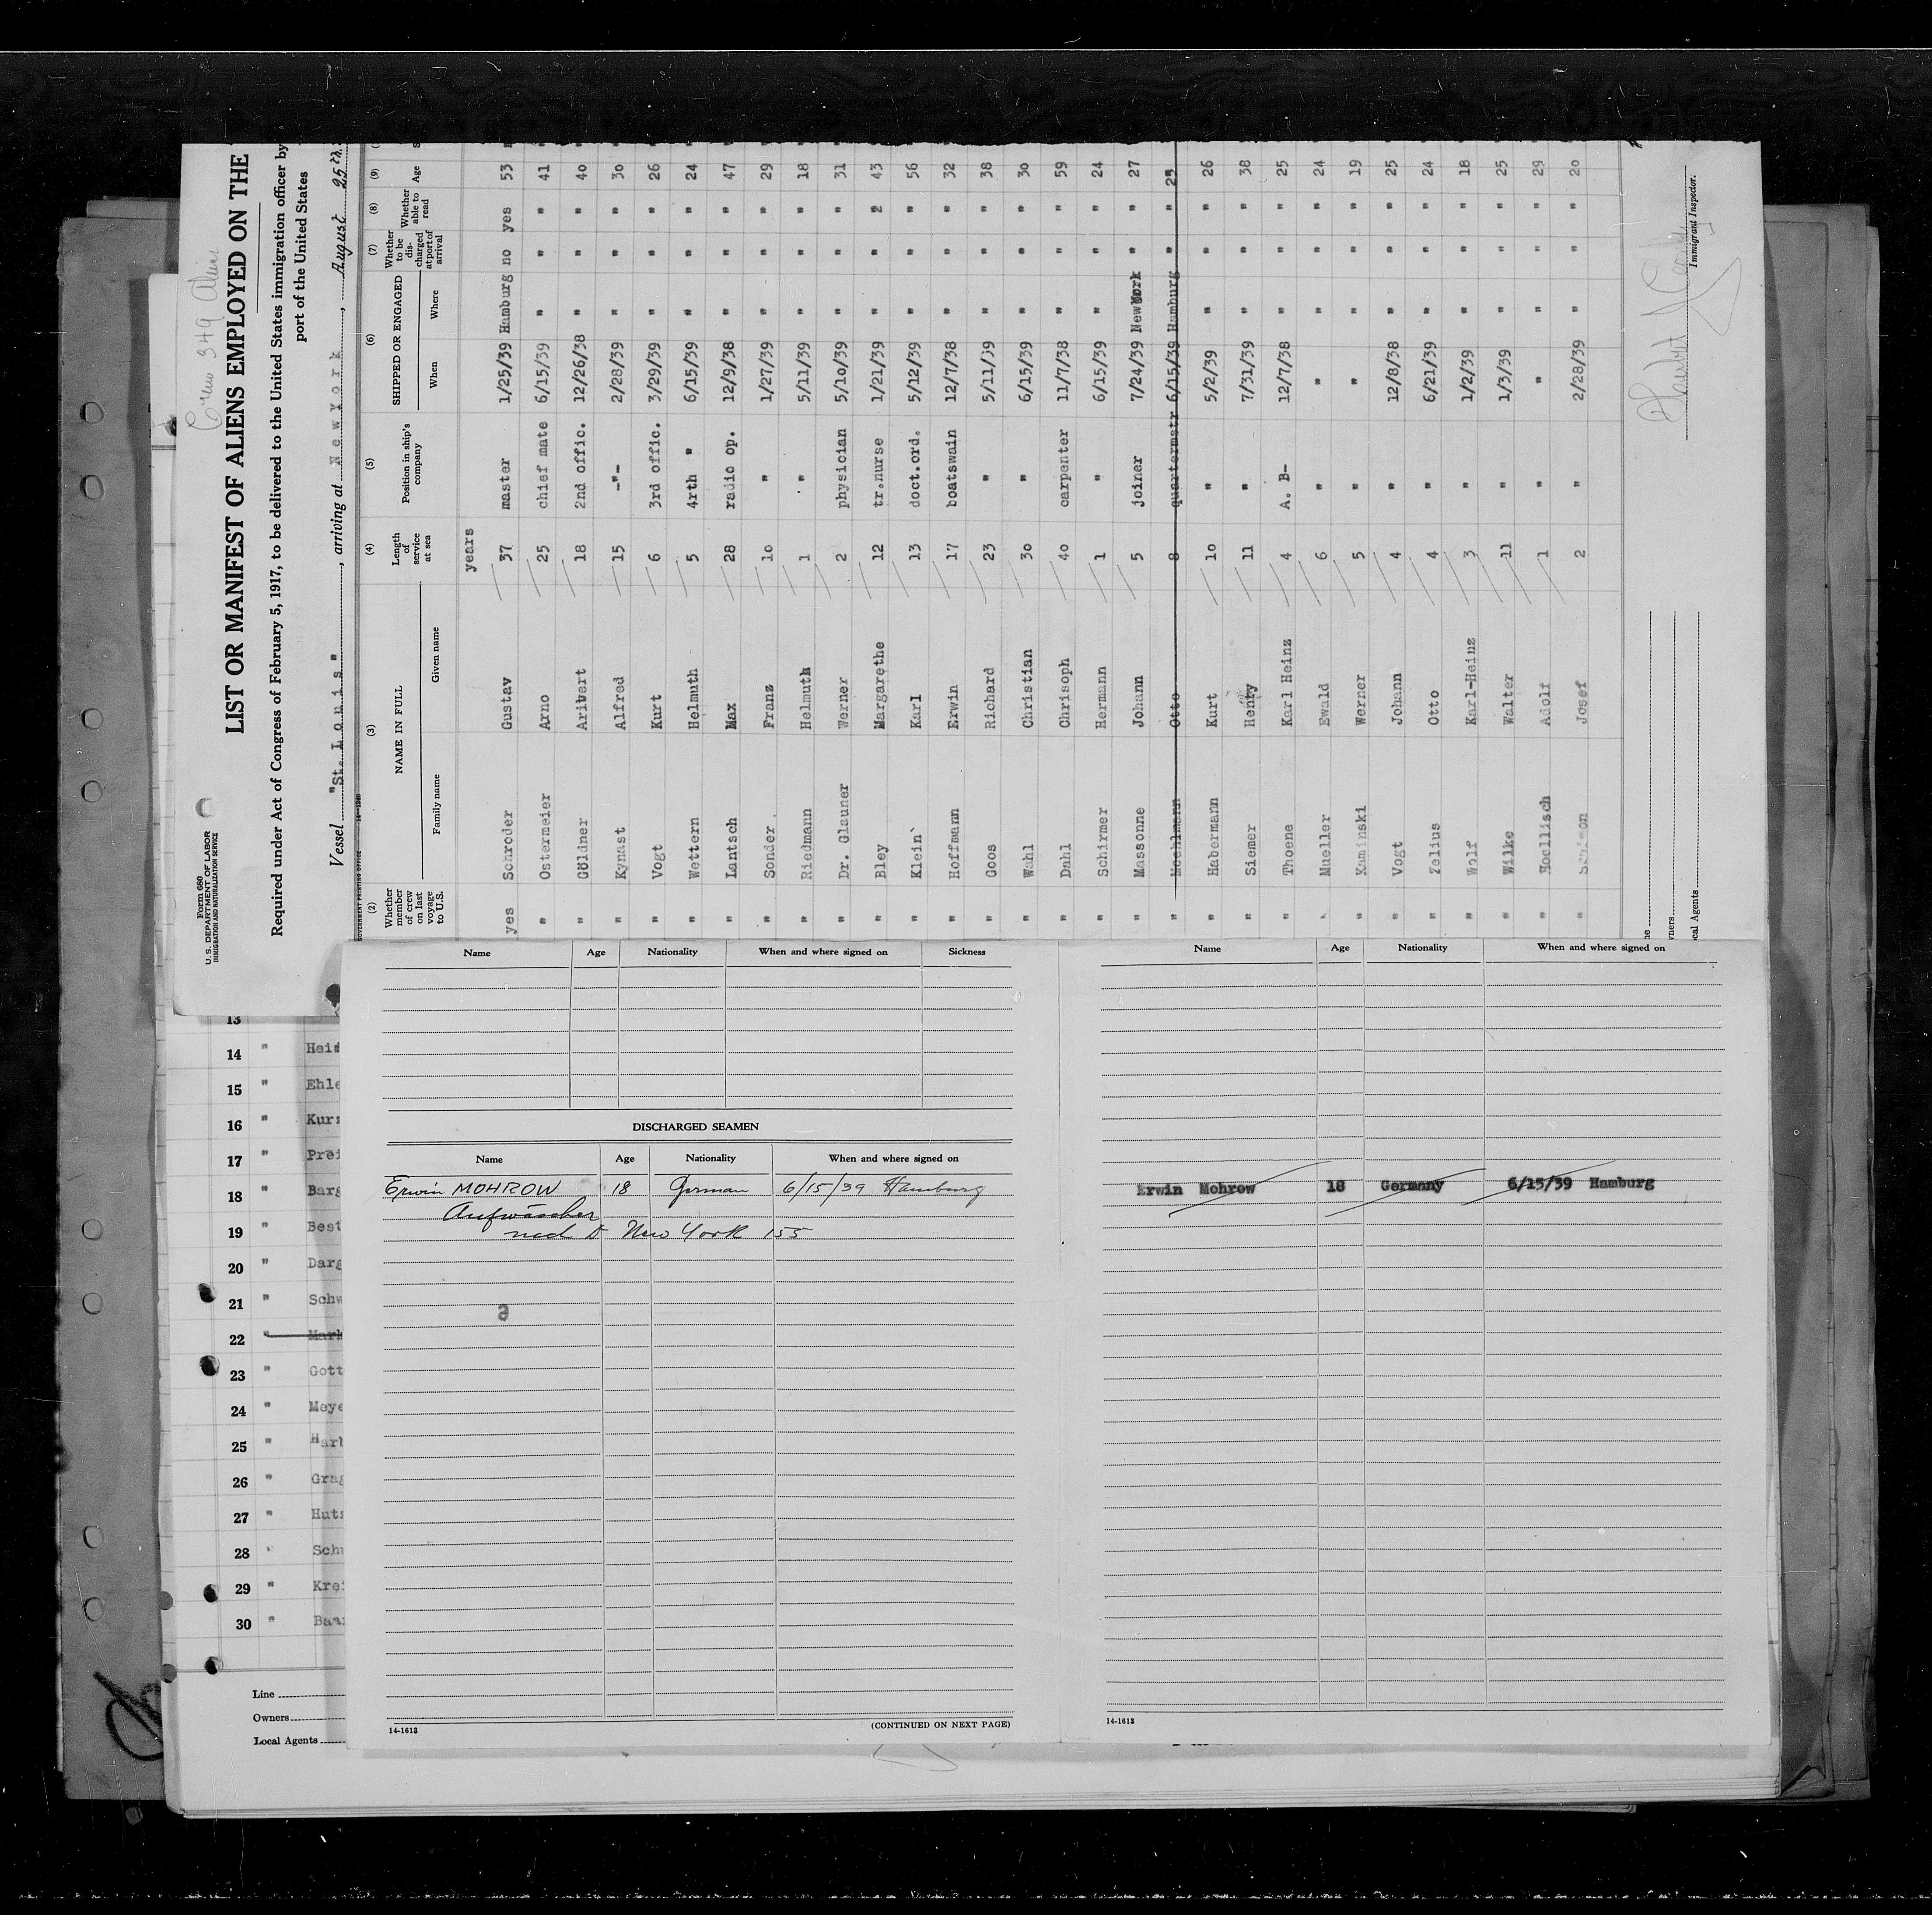 Crew 349
Form 680
U. S. DEPARTMENT OF LABOR
IMMIGRATION AND NATURALIZATION SERVICE
LIST OR MANIFEST OF ALIENS EMPLOYED ON THE
Required under Act of Congress of February 5, 1917, to be delivered to the United States immigration officer by
port of the United States
Vessel "St. Louis", arriving at New York, August 25th.
GOVERNMENT PRINTING OFFICE 14-1240
(2) (3) (4) (5) (6) (7) (8) (9)
Whether member of crew on last voyage to U.S. NAME IN FULL Family name Given name Length of service at sea Position in ship's company SHIPPED OR ENGAGED When Where Whether to be discharged at port of arrival Whether able to read Age
years
yes Schroder Gustav 37 master 1/25/39 Hamburg no yes 53
" Ostermeier Arno 25 chief mate 6/15/39 " " " 41
" Göldner Aribert 18 2nd offic. 12/26/38 " " " 40
" Kynast Alfred 15 -"- 2/28/39 " " " 30
" Vogt Kurt 6 3rd offic. 3/29/39 " " " 26
" Wettern Helmuth 5 4rth " 6/15/39 " " " 24
" Lantsch Max 28 radio op. 12/9/38 " " " 47
" Sonder Franz 10 " 1/27/39 " " " 29
" Riedmann Helmuth 1 " 5/11/39 " " " 18
" Dr. Glauner Werner 2 physician 5/10/39 " " " 31
" Bley Margarethe 12 tr.nurse 1/21/39 " " 2 43
" Klein Karl 13 doct.ord. 5/12/39 " " " 56
" Hoffmann Erwin 17 boatswain 12/7/38 " " " 32
" Goos Richard 23 " 5/11/39 " " " 38
" Wahl Christian 30 " 6/15/39 " " " 30
" Dahl Chrisoph 40 carpenter 11/7/38 " " " 59
" Schirmer Hermann 1 " 6/15/39 " " " 24
" Massonne Johann 5 joiner 7/24/39 New York " " 27
" Moehlmann Otto 8 quartermstr 6/15/39 Hamburg " " 25
" Habermann Kurt 10 " 5/2/39 " " " 26
" Siemer Henry 11 " 7/31/39 " " " 38
" Thoene Karl Heinz 4 A. B- 12/7/38 " " " 25
" Mueller Ewald 6 " " " " " 24
" Kaminski Werner 5 " " " " " 19
" Vogt Johann 4 " 12/8/38 " " " 25
" Zelius Otto 4 " 6/21/39 " " " 24
" Wolf Karl-Heinz 3 " 1/2/39 " " " 18
" Wilke Walter 11 " 1/3/39 " " " 25
" Hoellisch Adolf 1 " " " " " 29
" Josef 2 " 2/28/39 " " " 20
Immigrant Inspector.
13
14 "
15 "
16 "
17 "
18 "
19 "
20 "
21 "
22 "
23 "
24 "
25 "
26 "
27 "
28 "
29 "
30 "
Line
Owners
Local Agents
Name Age Nationality When and where signed on Sickness
DISCHARGED SEAMEN
Name Age Nationality When and where signed on
Erwin MOHROW 18 German 6/15/39 Hamburg
Aufwäscher
New York 155
14-1613 (CONTINUED ON NEXT PAGE)
Name Age Nationality When and where signed on
Erwin Mohrow 18 Germany 6/15/39 Hamburg
14-1613